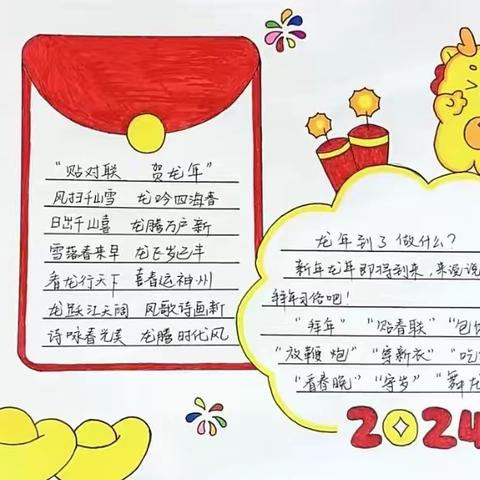 “贴对联 贺龙年”
风扫千山雪 龙吟四海春
日出千山喜 龙腾万户新
雪落春来早 龙飞岁已丰
看龙行天下 喜春运神州
龙跃江天阔 凤歌诗画新
诗咏春光美 龙腾时代风
龙年到了做什么?
新年龙年即将到来,来说说
拜年习俗吧!
“拜年” “贴春联” “包
“放鞭炮” “穿新衣” “吃
“看春晚” “守岁” “舞龙
2024